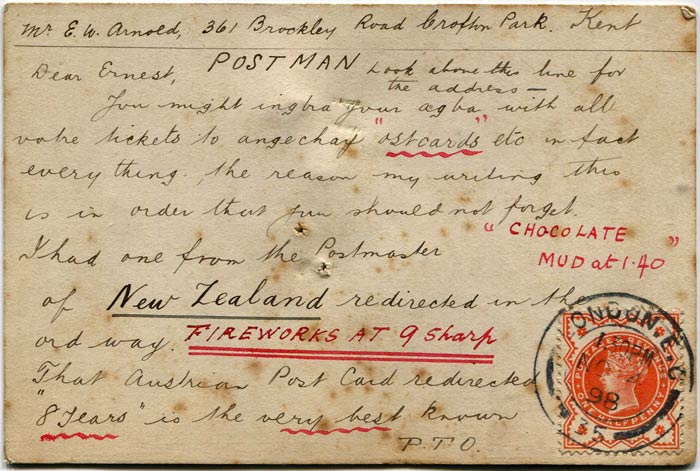 Mr E. W. Arnold, 361 Brockley Road Crofton Park. Kent
Dear Ernest, POSTMAN Look above this line for
the address —
You might ingbra your agba with all
votre tickets to angechay "ostcards" etc in fact
everything. the reason my writing this
is in order that you should not forget.
"CHOCOLATE
MUD at 1.40"
I had one from the Postmaster
of NEW ZEALAND redirected in the
ord way. FIREWORKS AT 9 sharp
That Austrian Post Card redirected
"8 Tears" is the very best known
P.T.O.
LONDON. E.C
98
35
POSTAGE
ONE HALFPENNY